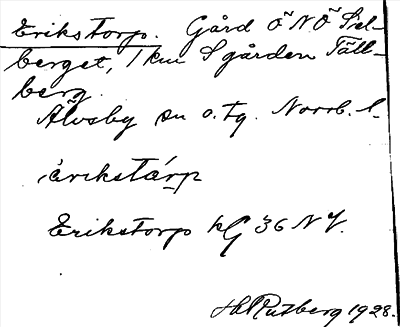 Erikstorp. Gård Ö NÖ Sel-
berget, 1 km S gården Täll-
berg.
Älvsby sn o. tg. Norrb. l.
èrikstárp
Erikstorp hG 36 N Y.
H Rutberg 1928.